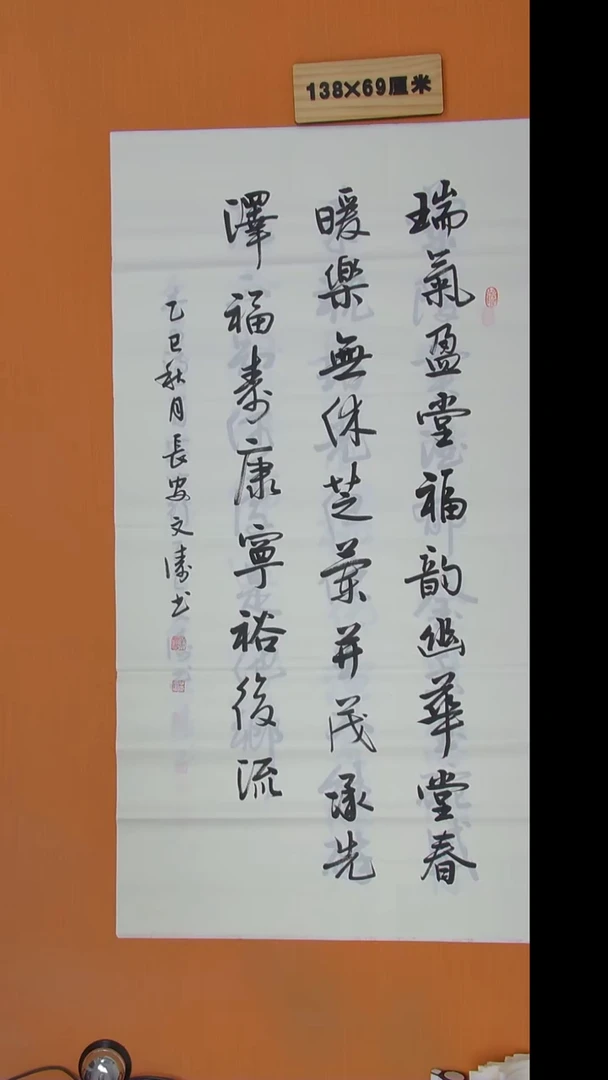 138×69厘米
瑞氣盈堂福韵幽華堂春
暖樂無休芝蘭并茂承先
澤福壽康寧裕後流
乙巳秋月長安文濤书